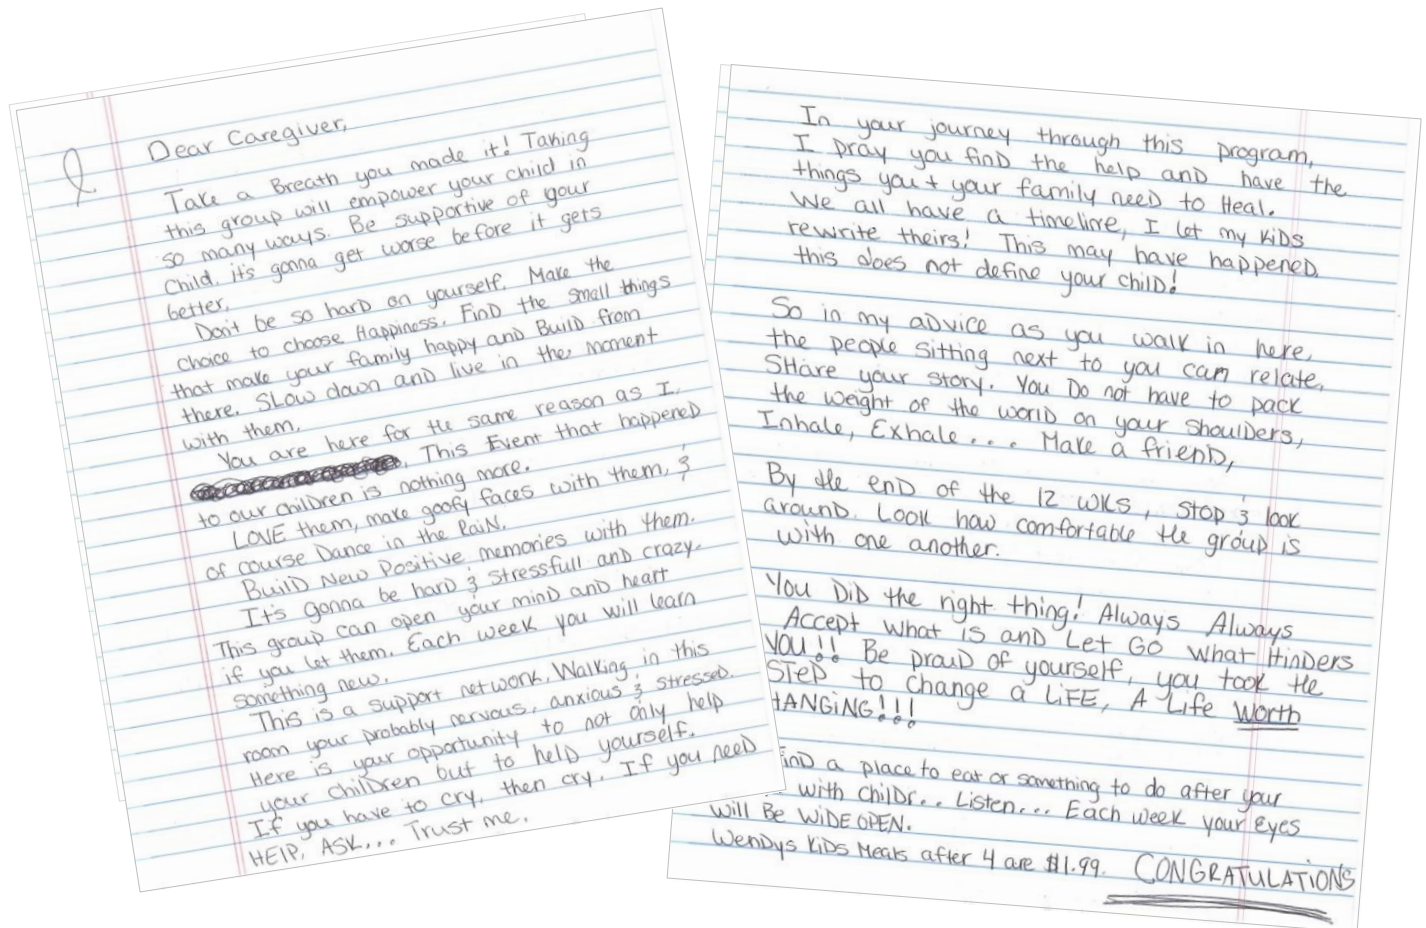 Dear Caregiver,
Take a Breath you made it! Taking
this group will empower your child in
so many ways. Be supportive of your
Child, it's gonna get worse before it gets
better.
Don't be so hard on yourself. Make the
choice to choose Happiness. Find the small things
that make your family happy and Build from
there. Slow down and live in the moment
with them.
You are here for the same reason as I,
. This Event that happened
to our children is nothing more.
LOVE them, make goofy faces with them, &
of course Dance in the Rain.
Build New Positive memories with them.
It's gonna be hard & stressfull and crazy.
This group can open your mind and heart
if you let them. Each week you will learn
something new.
This is a support network. Walking in this
room your probably nervous, anxious & stressed.
Here is your opportunity to not only help
your children but to help yourself.
If you have to cry, then cry. If you need
HElP, ASK... Trust me.
In your journey through this program,
I pray you find the help and have the
things you + your family need to Heal.
We all have a timeline, I let my KiDs
rewrite theirs! This may have happened
this does not define your child!
So in my advice as you walk in here,
the people sitting next to you can relate,
SHare your story. You Do not have to pack
the weight of the world on your shoulders,
Inhale, Exhale... Make a friend,
By the end of the 12 wks, stop & look
around. Look how comfortable the group is
with one another.
You Did the right thing! Always Always
Accept what is and Let Go what Hinders
YOU!! Be proud of yourself, you took the
STeP to change a LiFE, A Life Worth
HANGiNG!!!
ind a place to eat or something to do after your
with childr.. Listen... Each week your eyes
will Be WiDE OPEN.
Wendys KiDs Meals after 4 are $1.99. CONGRATULATiONS